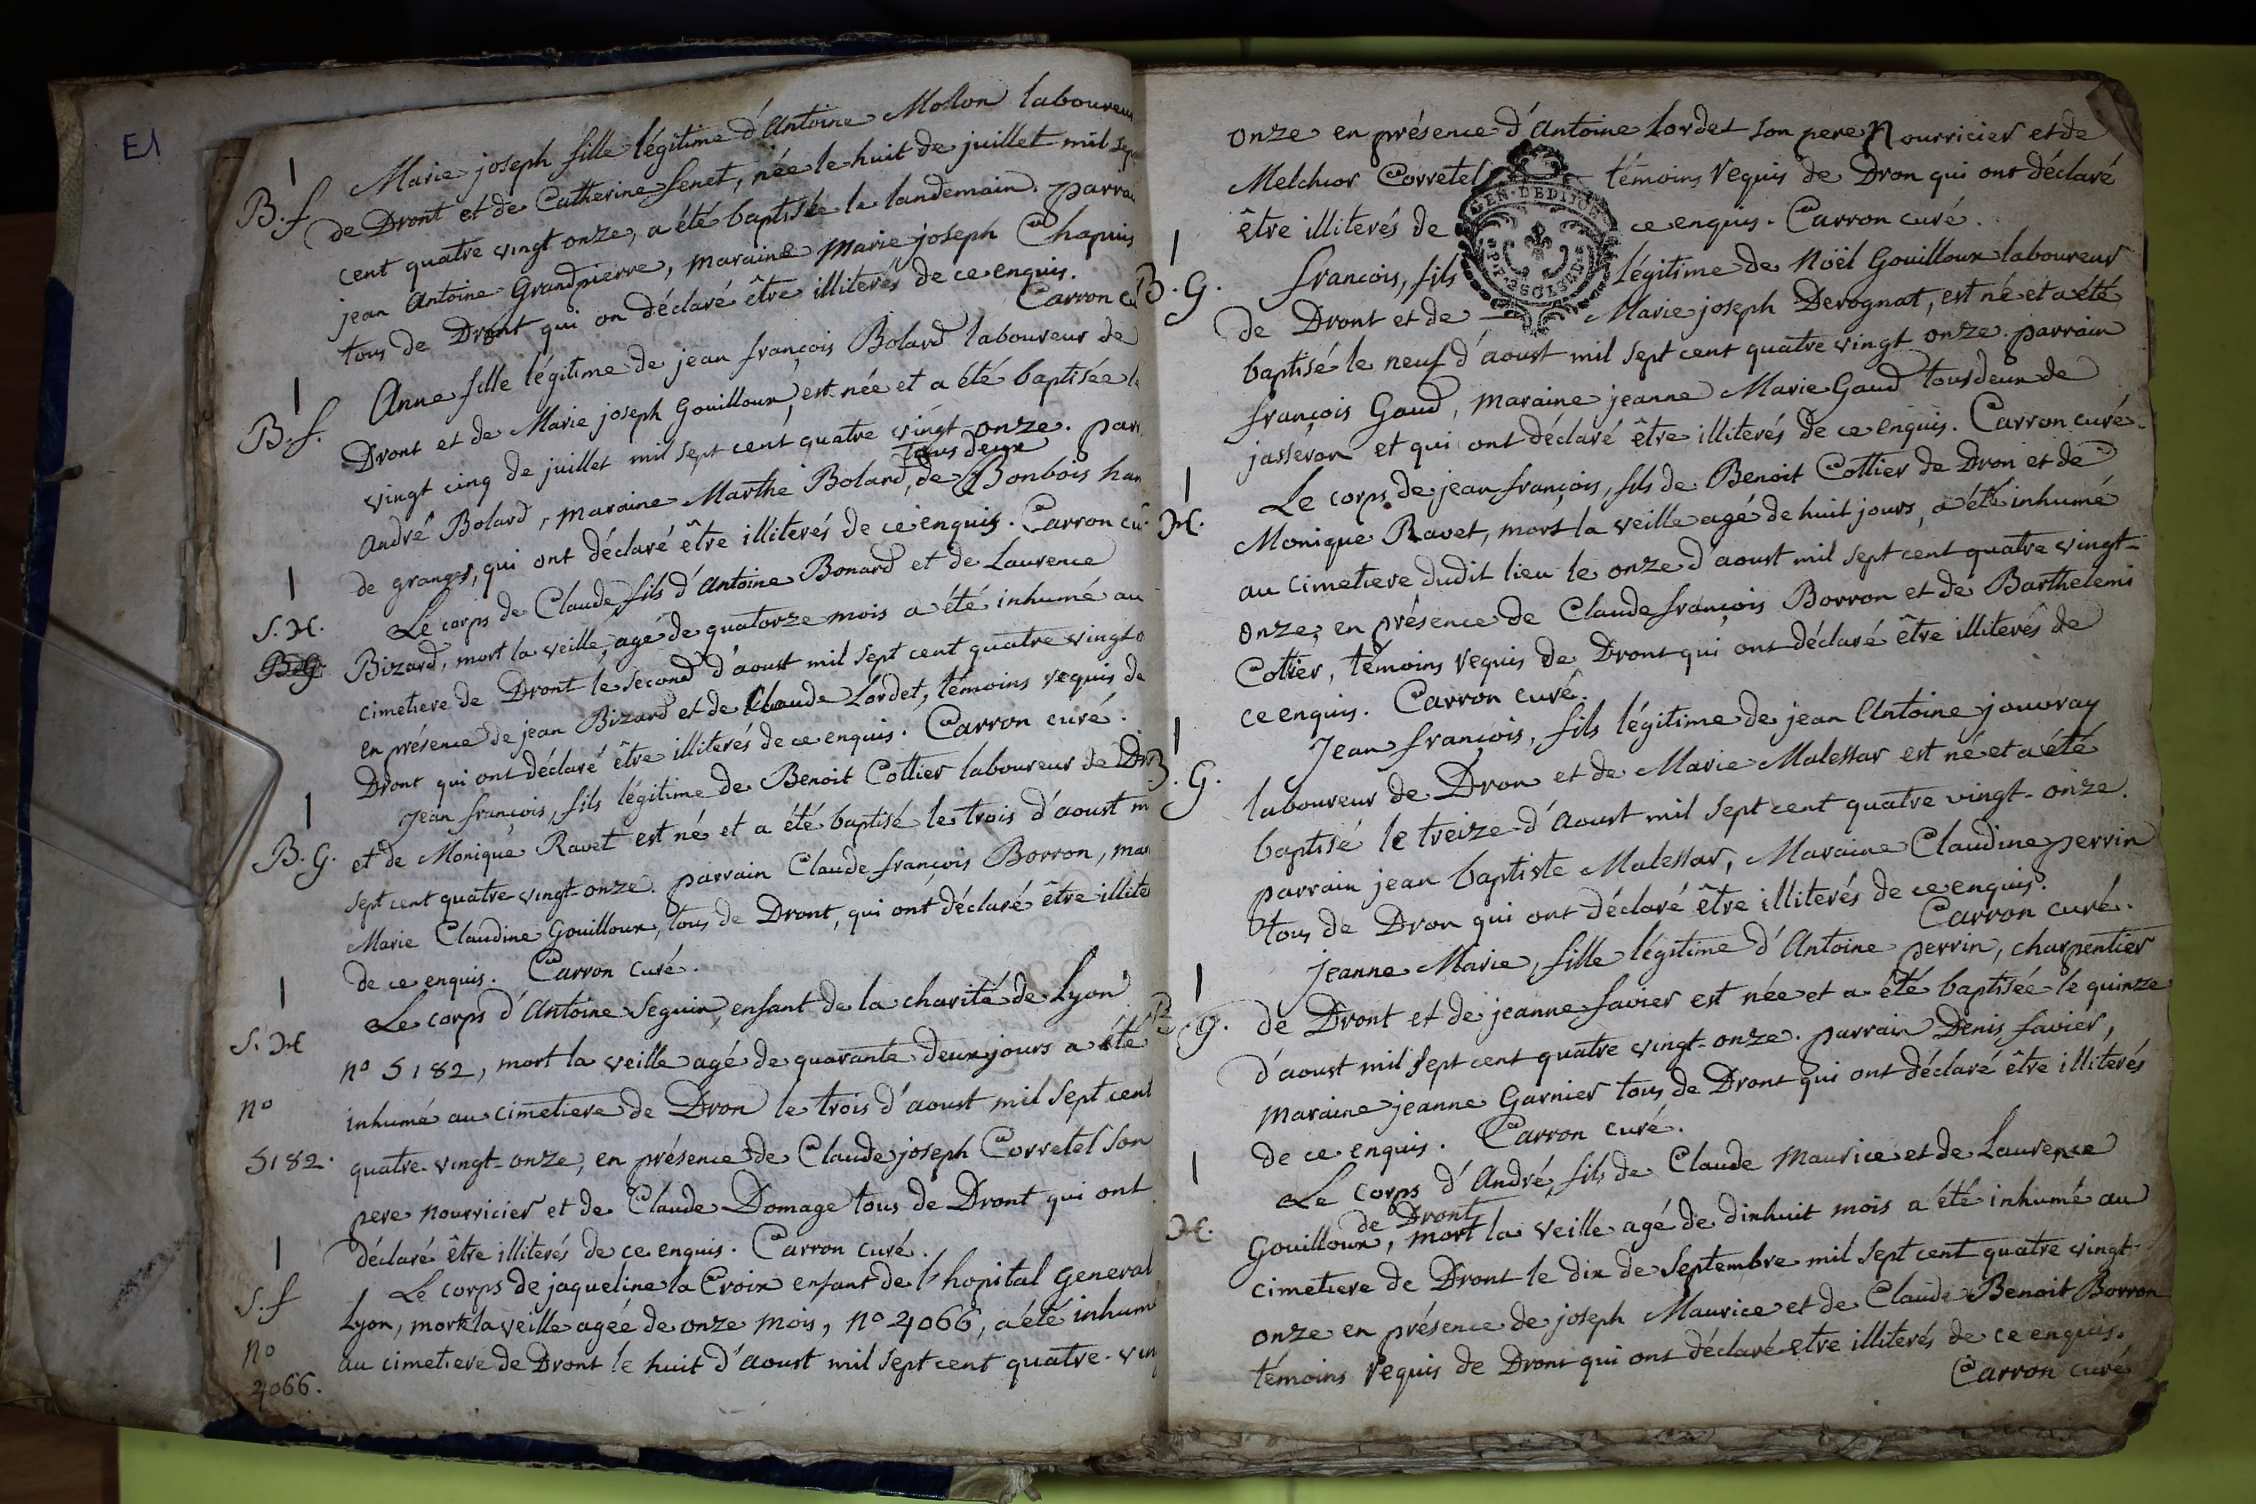 E1
1
B. f
Marie joseph fille légitime d'Antoine Molon laboureur
de Dront et de Catherine fenet, née le huit de juillet mil sept
cent quatre vingt onze, a été baptisée le landemain. parrai
jean Antoine Grandpierre, maraine Marie joseph Chapuis
tous de Dront qui on déclaré être illiterés de ce enquis.
Carron cu
1
B. f.
Anne fille légitime de jean françois Bolard laboureur de
Dront et de Marie joseph Gouilloux, est née et a été baptisée le
vingt cinq de juillet mil sept cent quatre vingt onze. parr
tous deux
André Bolard, maraine Marthe Bolard, de Bonbois ham
de granges, qui ont déclaré être illiterés de ce enquis. Carron cu
1
S. H.
B. G.
Le corps de Claude fils d'Antoine Bonard et de Laurence
Bizard, mort la veille, agé de quatorze mois a été inhumé au
cimetiere de Dront le second d'aoust mil sept cent quatre vingt o
en présence de jean Bizard et de Claude Lordet, témoins requis de
Dront qui ont déclaré être illiterés de ce enquis. Carron curé.
1
B. G.
Jean françois, fils légitime de Benoit Cottier laboureur de Dro
et de Monique Ravet est né et a été baptisé le trois d'aoust m
sept cent quatre-vingt-onze. parrain Claude françois Borron, mar
Marie Claudine Gouilloux, tous de Dront, qui ont déclaré être illite
de ce enquis. Carron curé.
1
S. H
Le corps d'Antoine Seguin, enfant de la charité de Lyon
n° 5182, mort la veille agé de quarante deux jours a été
n°
inhumé au cimetiere de Dron le trois d'aoust mil sept cent
5182.
quatre-vingt-onze, en présence de Claude joseph Corretel son
pere nourricier et de Claude Domage tous de Dront qui ont
déclaré être illiterés de ce enquis. Carron curé.
1
S. f
Le corps de jaqueline la Croix enfant de l'hopital General
Lyon, morte la veille agée de onze mois, n° 4066, a été inhumé
n°
4066.
au cimetiere de Dront le huit d'aoust mil sept cent quatre-vin
onze en présence d'Antoine Lordet son pere Nourricier et de
Melchior Corretel témoins requis de Dron qui ont déclaré
être illiterés de ce enquis. Carron curé.
1
B. G.
françois, fils légitime de Noël Gouilloux laboureur
de Dront et de Marie joseph Derognat, est né et a été
baptisé le neuf d'aoust mil sept cent quatre vingt onze. parrain
françois Gaud, maraine jeanne Marie Gaud tous deux de
jasséron et qui ont déclaré être illiterés de ce enquis. Carron curé.
1
H.
Le corps de jean françois, fils de Benoit Cottier de Dron et de
Monique Ravet, mort la veille agé de huit jours, a été inhumé
au cimetiere dudit lieu le onze d'aoust mil sept cent quatre vingt-
onze, en présence de Claude françois Borron et de Barthelemi
Cottier, témoins requis de Dront qui ont déclaré être illiterés de
ce enquis. Carron curé.
1
B. G.
Jean françois, fils légitime de jean Antoine jouvray
laboureur de Dron et de Marie Malessar est né et a été
baptisé le treize d'aoust mil sept cent quatre vingt-onze.
parrain jean baptiste Malessar, Maraine Claudine perrin
tous de Dron qui ont déclaré être illiterés de ce enquis.
Carron curé.
1
B. G.
Jeanne Marie, fille légitime d'Antoine perrin, charpentier
de Dront et de jeanne favier est née et a été baptisée le quinze
d'aoust mil sept cent quatre vingt-onze. parrain Denis favier,
maraine jeanne Garnier tous de Dront qui ont déclaré être illiterés
de ce enquis. Carron curé.
1
H.
Le corps d'André, fils de Claude Maurice et de Laurence
de Dront
Gouilloux, mort la veille agé de dixhuit mois a été inhumé au
cimetiere de Dront le dix de septembre mil sept cent quatre vingt-
onze en présence de joseph Maurice et de Claude Benoit Borron
témoins requis de Dront qui ont déclaré etre illiterés de ce enquis.
Carron curé